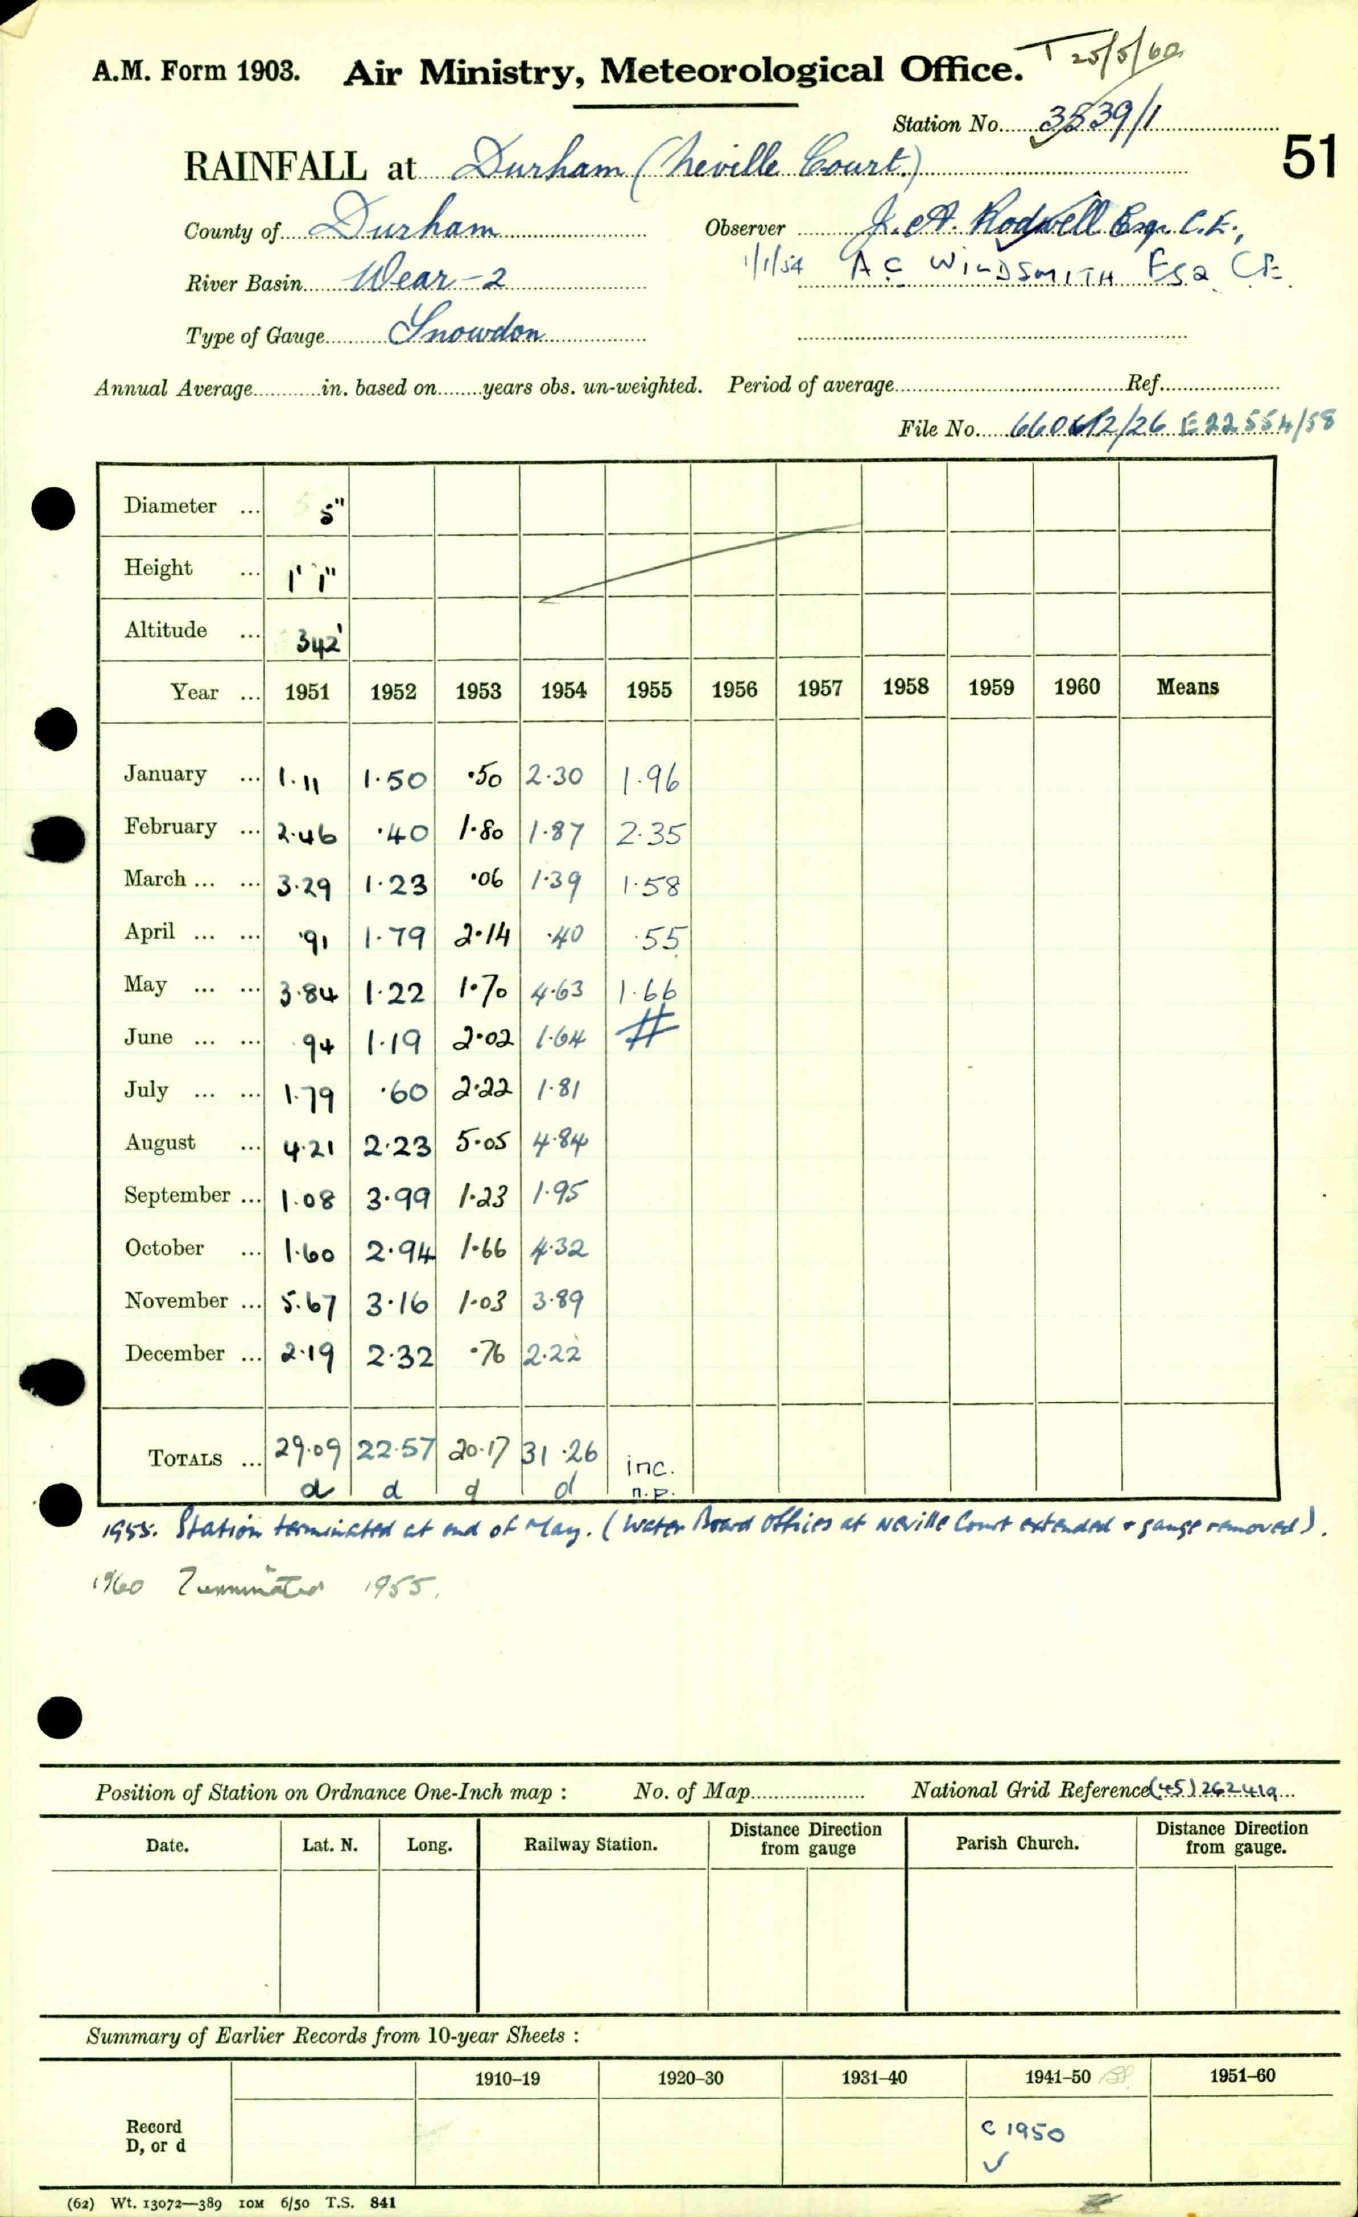 T 25/5/60
A.M. Form 1903. Air Ministry, Meteorological Office.
Station No. 3539/1
51
RAINFALL at Durham (Neville Court.)
County of Durham Observer J. A. Rodwell Esq. C.E.,
1/1/54 A C WINDSMITH Esq CE
River Basin Wear-2
Type of Gauge Snowdon
Annual Average in. based on years obs. un-weighted. Period of average Ref.
File No. 660612/26 E22554/58
Diameter ... 5"
Height ... 1' 1"
Altitude ... 342'
Year ... 1951 1952 1953 1954 1955 1956 1957 1958 1959 1960 Means
January ... 1.11 1.50 .50 2.30 1.96
February ... 2.46 .40 1.80 1.87 2.35
March ... ... 3.29 1.23 .06 1.39 1.58
April ... ... .91 1.79 2.14 .40 .55
May ... ... 3.84 1.22 1.70 4.63 1.66
June ... ... .94 1.19 2.02 1.64 #
July ... ... 1.79 .60 2.22 1.81
August ... 4.21 2.23 5.05 4.84
September ... 1.08 3.99 1.23 1.95
October ... 1.60 2.94 1.66 4.32
November ... 5.67 3.16 1.03 3.89
December ... 2.19 2.32 .76 2.22
TOTALS ... 29.09 22.57 20.17 31.26 inc.
d d d d n.p.
1955. Station terminated at end of May. (Water Board Offices at Neville Court extended + gauge removed).
1960 Terminated 1955.
Position of Station on Ordnance One-Inch map : No. of Map National Grid Reference (45) 262419
Date. Lat. N. Long. Railway Station. Distance Direction from gauge Parish Church. Distance Direction from gauge.
Summary of Earlier Records from 10-year Sheets :
1910–19 1920–30 1931–40 1941–50 1951–60
Record
D, or d
C 1950
✓
(62) Wt. 13072—389 IOM 6/50 T.S. 841